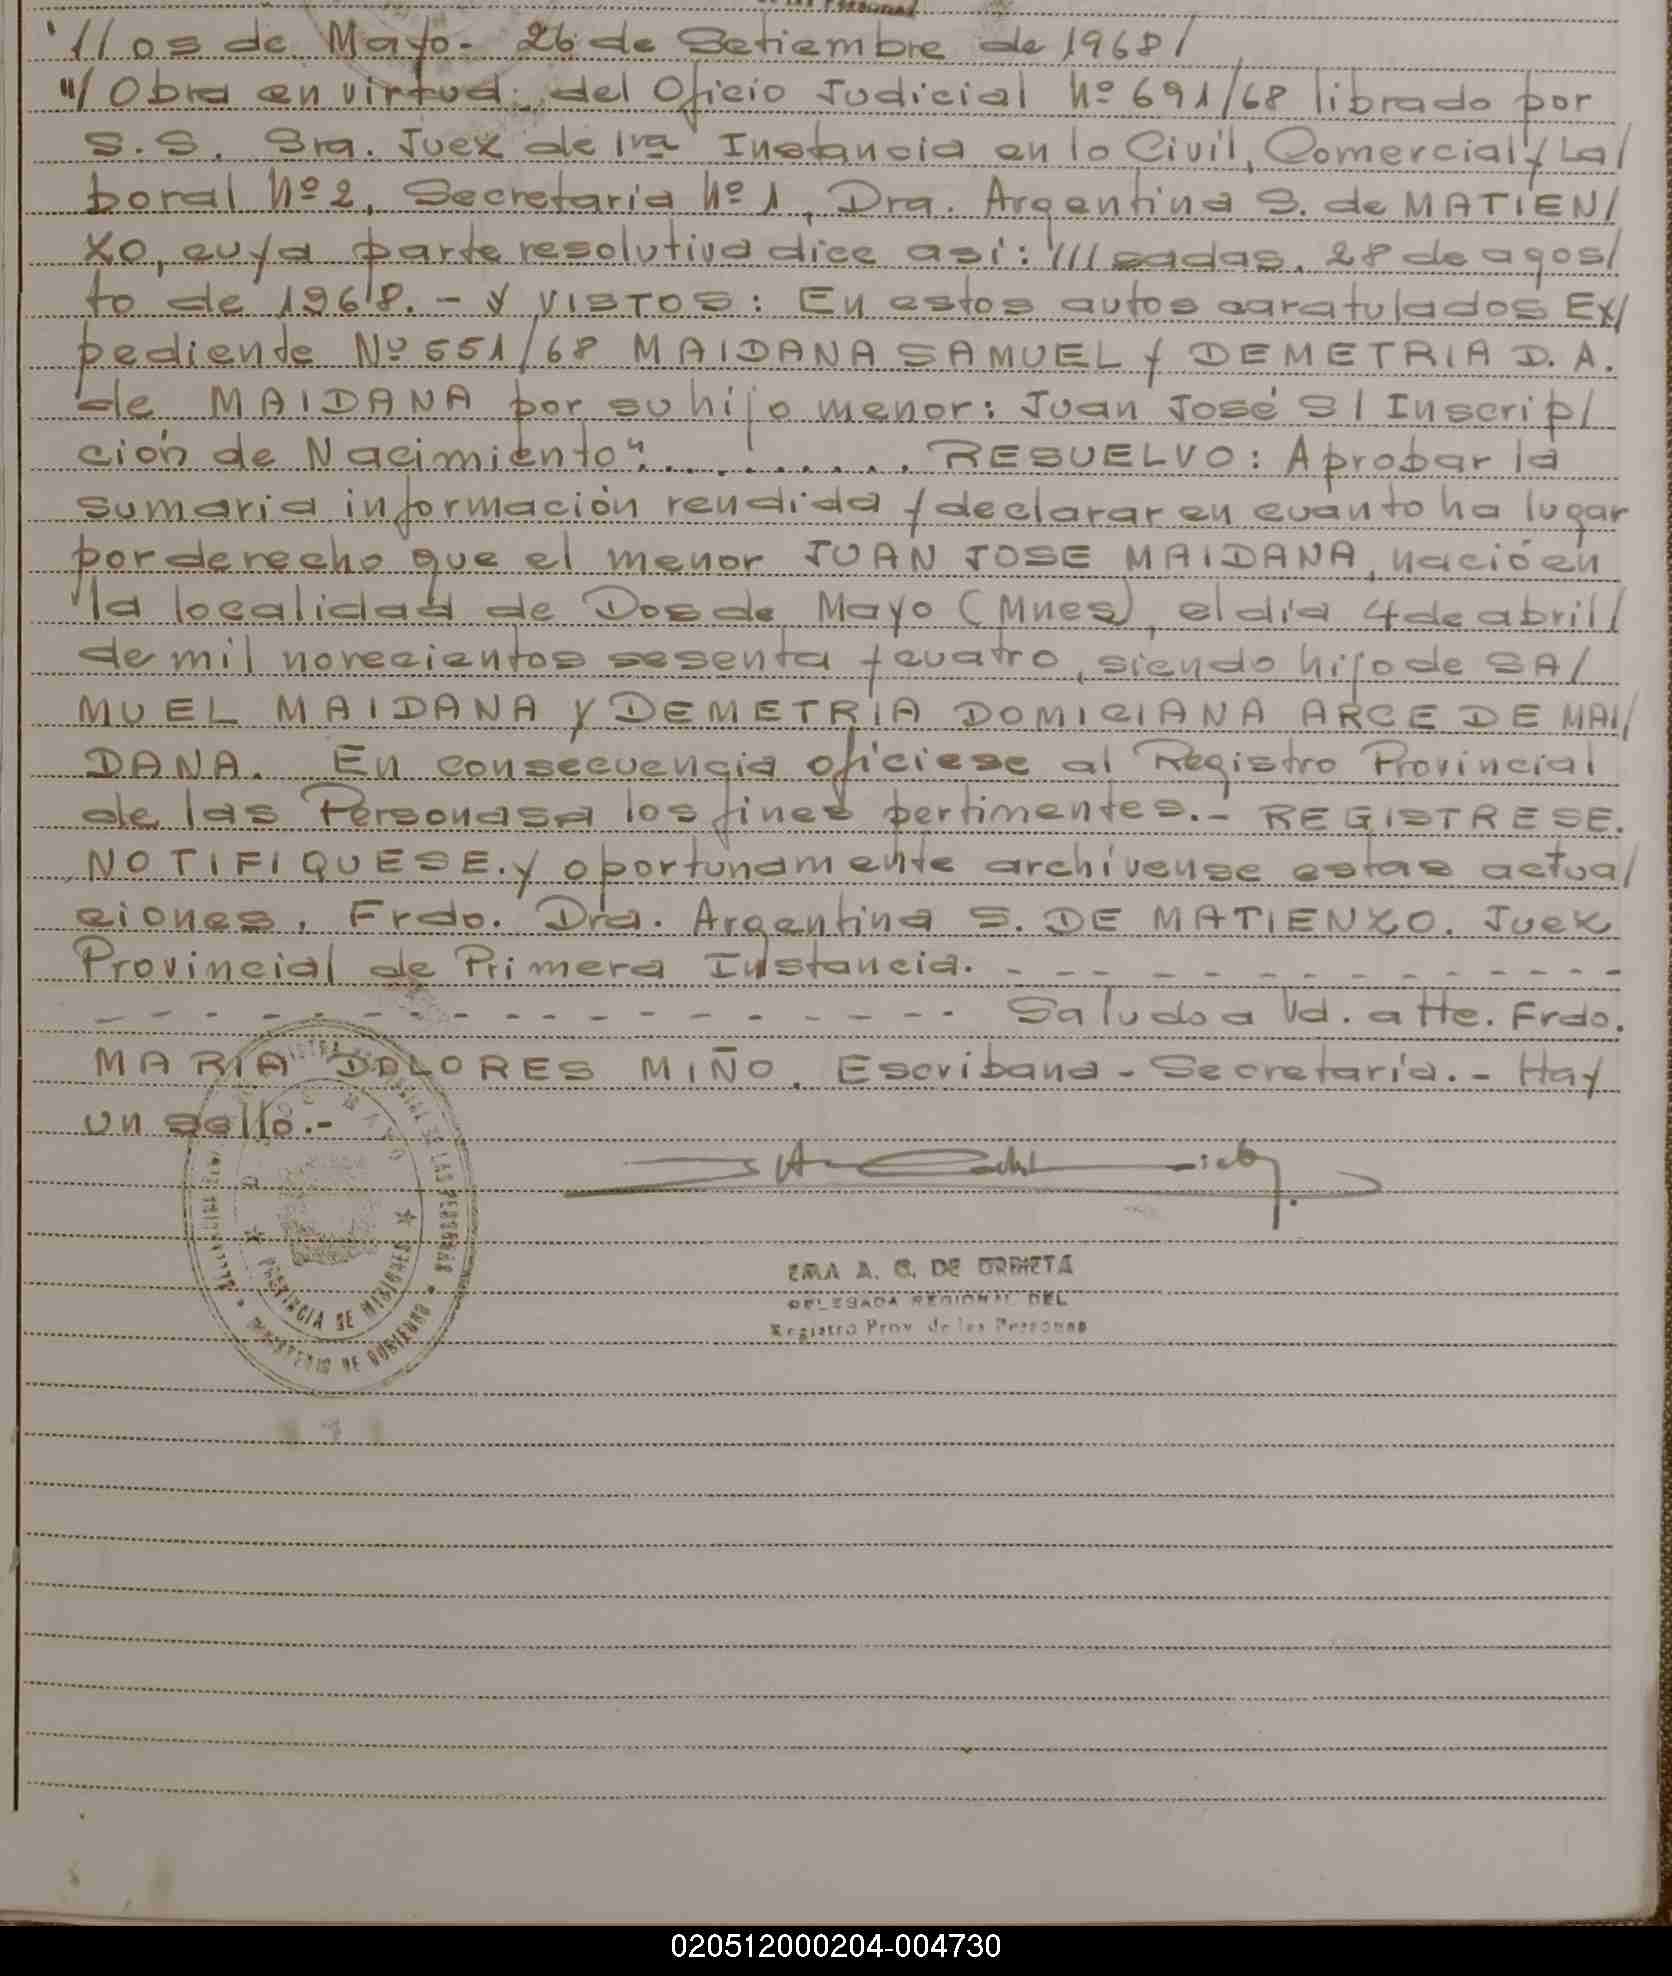 '//os de Mayo.- 26 de Setiembre de 1968/
"/ Obra en virtud del Oficio Judicial Nº 691/68 librado por
S.S. Sra. Juex de 1ra Instancia en lo Civil, Comercial y La/
boral Nº 2, Secretaria Nº 1, Dra. Argentina S. de MATIEN/
XO, cuya parte resolutiva dice así: "///sadas, 28 de agos/
to de 1968.- Y VISTOS: En estos autos caratulados Ex/
pediente Nº 551/68 MAIDANA SAMUEL y DEMETRIA D. A.
de MAIDANA por su hijo menor: Juan José S/ Inscrip/
ción de Nacimiento"......... RESUELVO: Aprobar la
sumaria información rendida y declarar en cuanto ha lugar
por derecho que el menor JUAN JOSE MAIDANA, nació en
la localidad de Dos de Mayo (Mnes), el día 4 de abril/
de mil novecientos sesenta y cuatro, siendo hijo de SA/
MUEL MAIDANA y DEMETRIA DOMICIANA ARCE DE MAI/
DANA. En consecuencia ofíciese al Registro Provincial
de las Personas a los fines pertimentes.- REGISTRESE.
NOTIFIQUESE. y oportunamente archívense estas actua/
ciones. Frdo. Dra. Argentina S. DE MATIENXO. Juex
Provincial de Primera Instancia. - - - - - - - - - - - -
- - - - - - - - - - - - - - - - Saludo a Ud. atte. Frdo.
MARIA DOLORES MIÑO. Escribana - Secretaria. - Hay
un sello.-
EMA A. G. DE URRIETA
DELEGADA REGIONAL DEL
Registro Prov. de las Personas
PROVINCIA DE MISIONES
MINISTERIO DE GOBIERNO
020512000204-004730